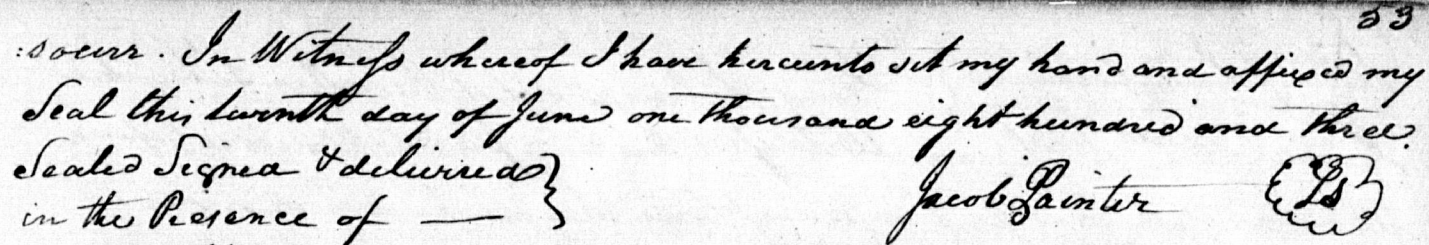 53
:soever. In Witness whereof I have hereunto set my hand and affixed my
Seal this day of June one thousand eight hundred and three.
Sealed Signed & delivered }
in the Presence of — } Jacob Painter (Ls)